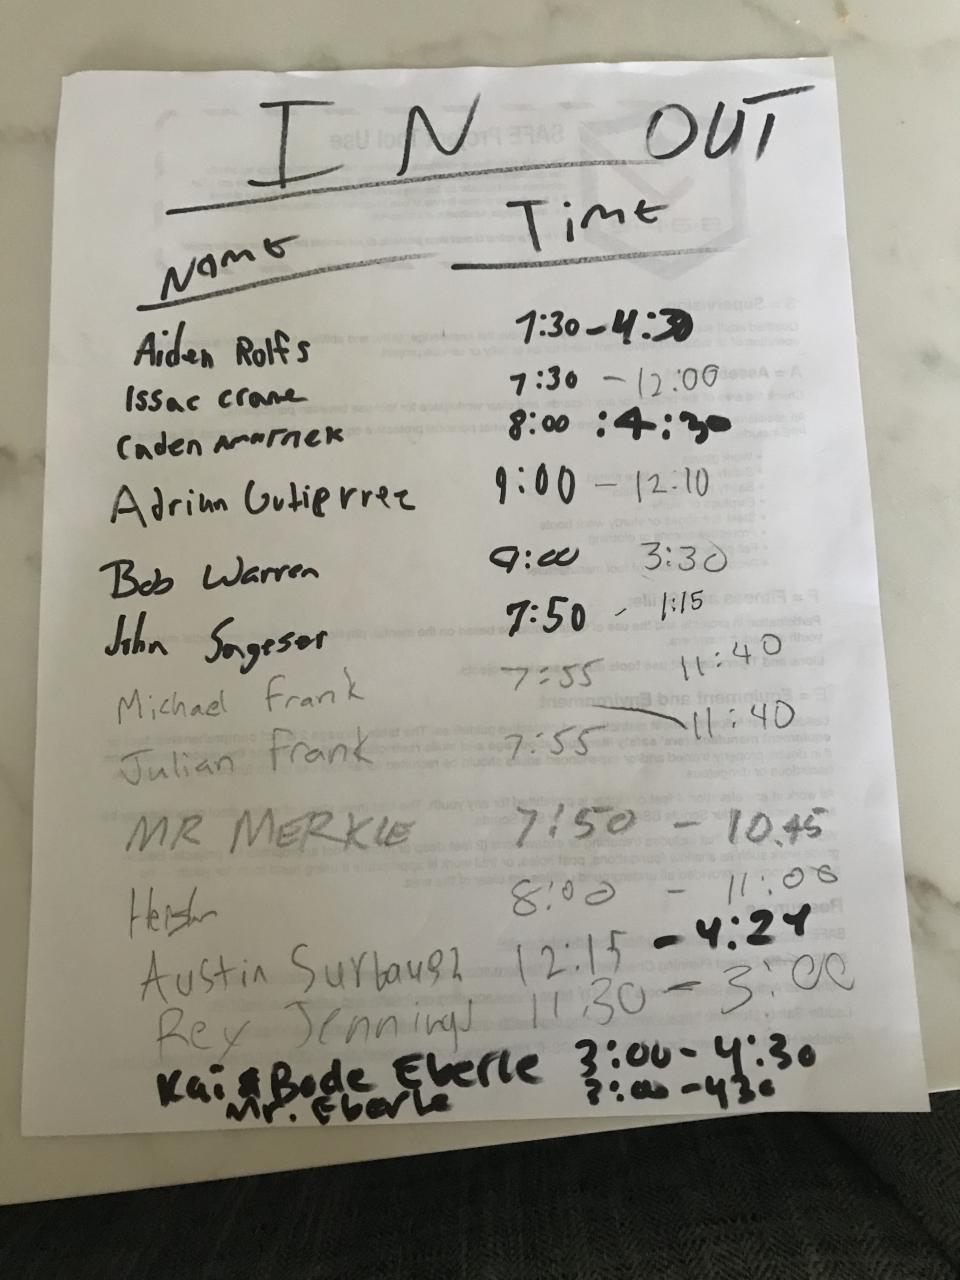 IN OUT
Name Time
Aiden Rolfs 7:30 - 4:30
Issac crane 7:30 - 12:00
Caden 8:00 : 4:30
Adrian Gutierrez 9:00 - 12:10
Bob Warren 9:00 3:30
John Sageser 7:50 - 1:15
Michael Frank 7:55 11:40
Julian Frank 7:55 11:40
MR MERKLE 7:50 - 10:45
8:00 - 11:00
Austin 12:15 - 4:24
Rex Jennings 11:30 - 3:00
Kai & Bode Eberle 3:00 - 4:30
Mr. Eberle 3:00 - 430